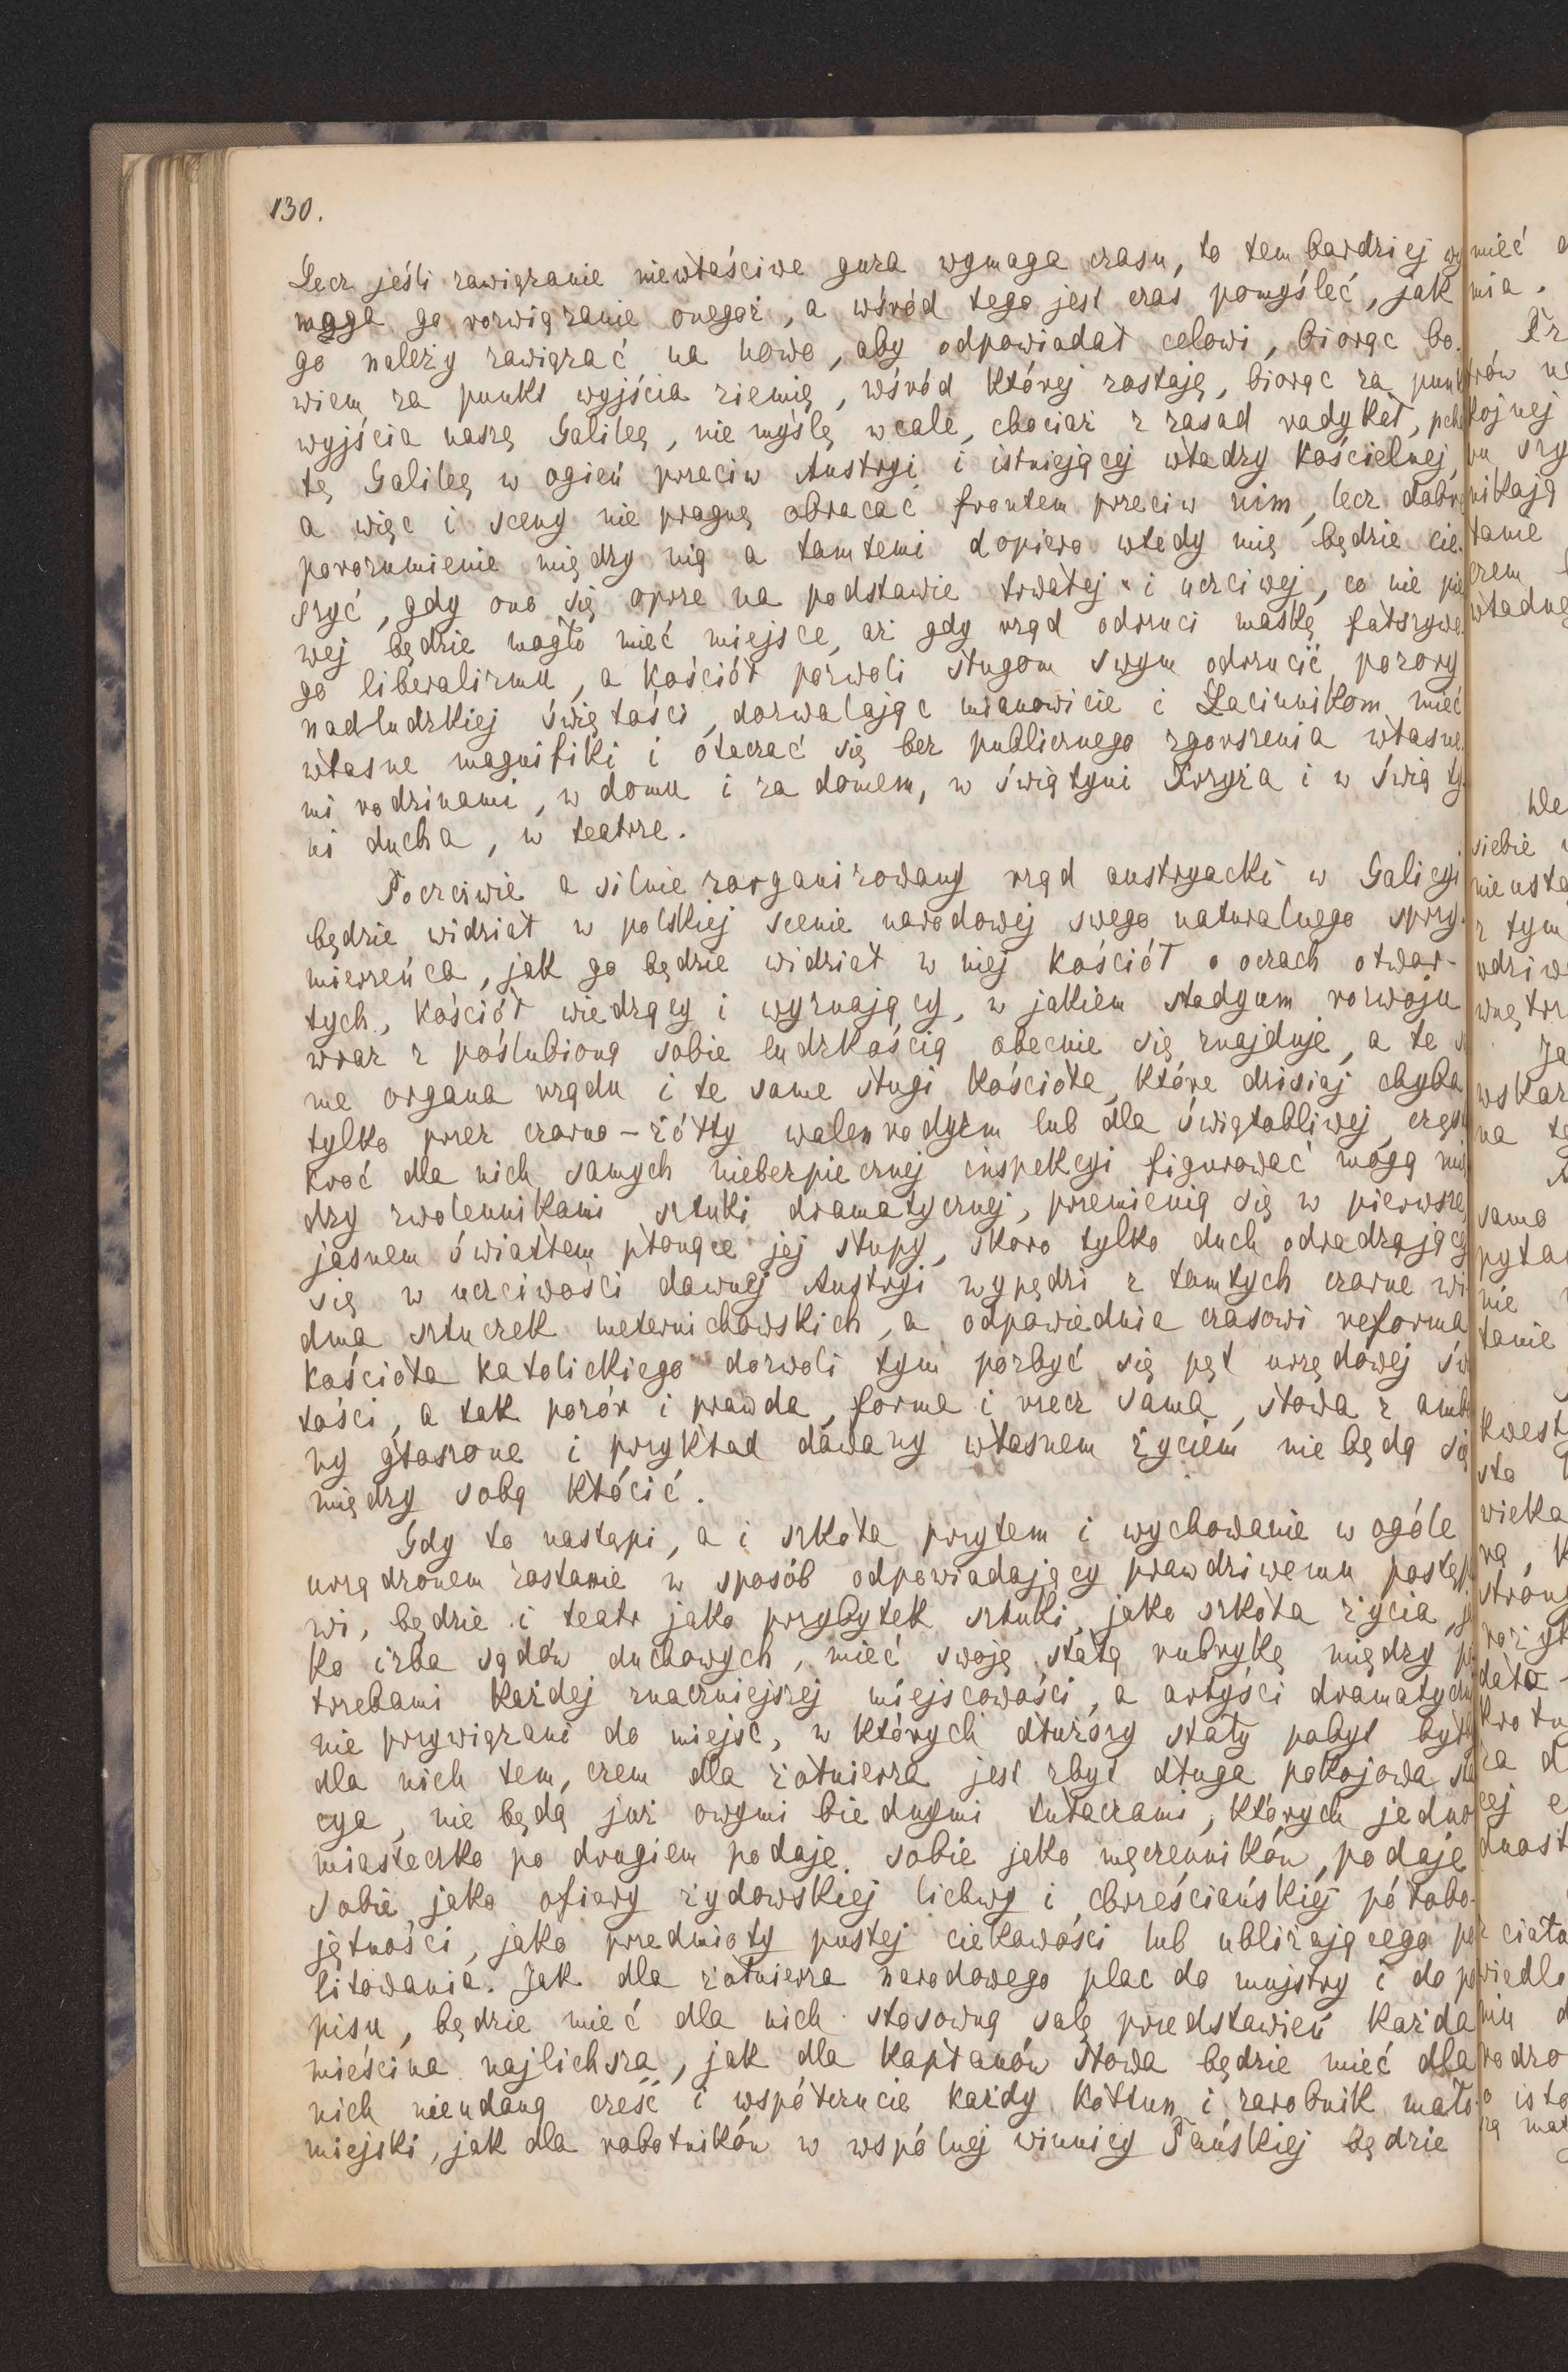 130.
Lecz jeśli zawiązanie niewłaściwe guza wymaga czasu, to tem bardziej wy
maga go rozwiązanie onegoż, a wśród tego jest czas pomyśleć, jak
go należy zawiązać na nowo, aby odpowiadał celowi, biorąc bo-
wiem za punkt wyjścia ziemię, wśród której zostaję, biorąc za punkt
wyjścia naszę Galileę, nie myślę wcale, chociaż z zasad radykał, pchać
tę Galileę w ogień przeciw Austryi i istniejącej władzy kościelnej,
a więc i sceny nie pragnę obracać frontem przeciw nim, lecz dobre
porozumienie między nią a tamtemi dopiero wtedy mię będzie cie-
szyć, gdy ono się oprze na podstawie trwałej i uczciwej, co nie pier
wej będzie mogło mieć miejsce, aż gdy rząd odrzuci maskę fałszywe-
go liberalizmu, a kościół pozwoli sługom swym odrzucić pozory
nadludzkiej świętości, dozwalając mianowicie i Łacinnikom mieć
własne magnifiki i otaczać się bez publicznego zgorszenia własne-
mi rodzinami, w domu i za domem, w świątyni Krzyża i w świąty-
ni ducha, w teatrze.
Poczciwie a silnie zorganizowany rząd austryacki w Galicyi
będzie widział w polskiej scenie narodowej swego naturalnego sprzy-
mierzeńca, jak go będzie widział w niej kościół o oczach otwar-
tych, kościół wiedzący i wyznający, w jakiem stadyum rozwoju
wraz z poślubioną sobie ludzkością obecnie się znajduje, a te sa
me organa rządu i te same sługi kościoła, które dzisiaj chyba
tylko przez czarno-żółty walenrodyzm lub dla świątobliwej, częst
kroć dla nich samych niebezpiecznej inspekcyi figurować mogą mię
dzy zwolennikami sztuki dramatycznej, przemienią się w pierwsze,
jasnem światłem płonące jej słupy, skoro tylko duch odradzający
się w uczciwości dawnej Austryi wypędzi z tamtych czarne wi
dma sztuczek meternichowskich, a odpowiednia czasowi reforma
kościoła katolickiego dozwoli tym pozbyć się pęt urzędowej świ
tości, a tak pozór i prawda, forma i rzecz sama, słowa z ambo
ny głoszone i przykład dawany własnem życiem nie będą się
między sobą kłócić.
Gdy to nastąpi, a i szkoła przytem i wychowanie w ogóle
urządzonem zostanie w sposób odpowiadający prawdziwemu postępo
wi, będzie i teatr jako przybytek sztuki, jako szkoła życia, ja
ko izba sądów duchowych, mieć swoję stałą rubrykę między po
trzebami każdej znaczniejszej miejscowości, a artyści dramatyczni
nie przywiązani do miejsc, w których dłuższy stały pobyt byłby
dla nich tem, czem dla żołnierza jest zbyt długa pokojowa sta
cya, nie będą już owymi biednymi tułaczami, których jedno
miasteczko po drugiem podaje sobie jako męczenników, podaje
sobie jako ofiary żydowskiej lichwy i chrześciańskiej półobo-
jętności, jako przedmioty pustej ciekawości lub ubliżającego po
litowania. Jak dla żołnierza narodowego plac do musztry i do po
pisu, będzie mieć dla nich stosowną salę przedstawień każda
mieścina najlichsza, jak dla kapłanów słowa będzie mieć dla
nich nieudaną cześć i współczucie każdy kołtun i zarobnik mało-
miejski, jak dla robotników w wspólnej winnicy Pańskiej będzie